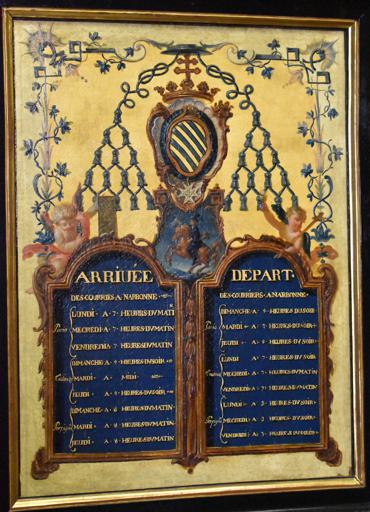 ARRIUÉE
DES·COURRIES·A·NARBONNE
LUNDI · A · 7 · HEURES·DU·MATI
MECREDI · A · 7 · HEURES·DU·MATIN
VENDREDI · A · 7 · HEURES·DU·MATIN
DIMANCHE · A · 9 · HEURES·DU·SOIR
MARDI · A · MIDI
JEUDI · A · HEURES·DU·SOIR
DIMANCHE · A · 8 · HEURES·DU·MATIN
MARDI · A · 8 · HEURES·DU·MATIN
JEUDI · A · 8 · HEURES·DU·MATIN
DEPART·
DES·COURRIERS·A·NARBONNE·
DIMANCHE · A · HEURES·DU·SOIR
MARDI · A · HEURES·DU·SOIR
JEUDI · A · HEURES·DU·SOIR
LUNDI · A · HEURES·DU·SOIR
MECREDI · A · HEURES·DU·MATIN
VENDREDI · A · HEURES·DU·MATIN
LUNDI · A · HEURES·DU·SOIR
MECREDI · A · HEURES·DU·SOIR
VENDREDI · A · HEURES·DU·SOIR